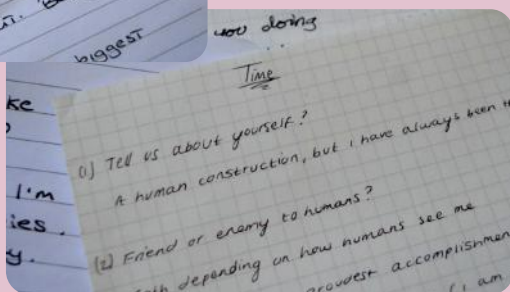 biggest
you doing
Time
ke
(1) Tell us about yourself?
A human construction, but I have always been
I'm
ies.
y.
(2) Friend or enemy to humans?
depending on how humans see me
proudest accomplishmen
I am